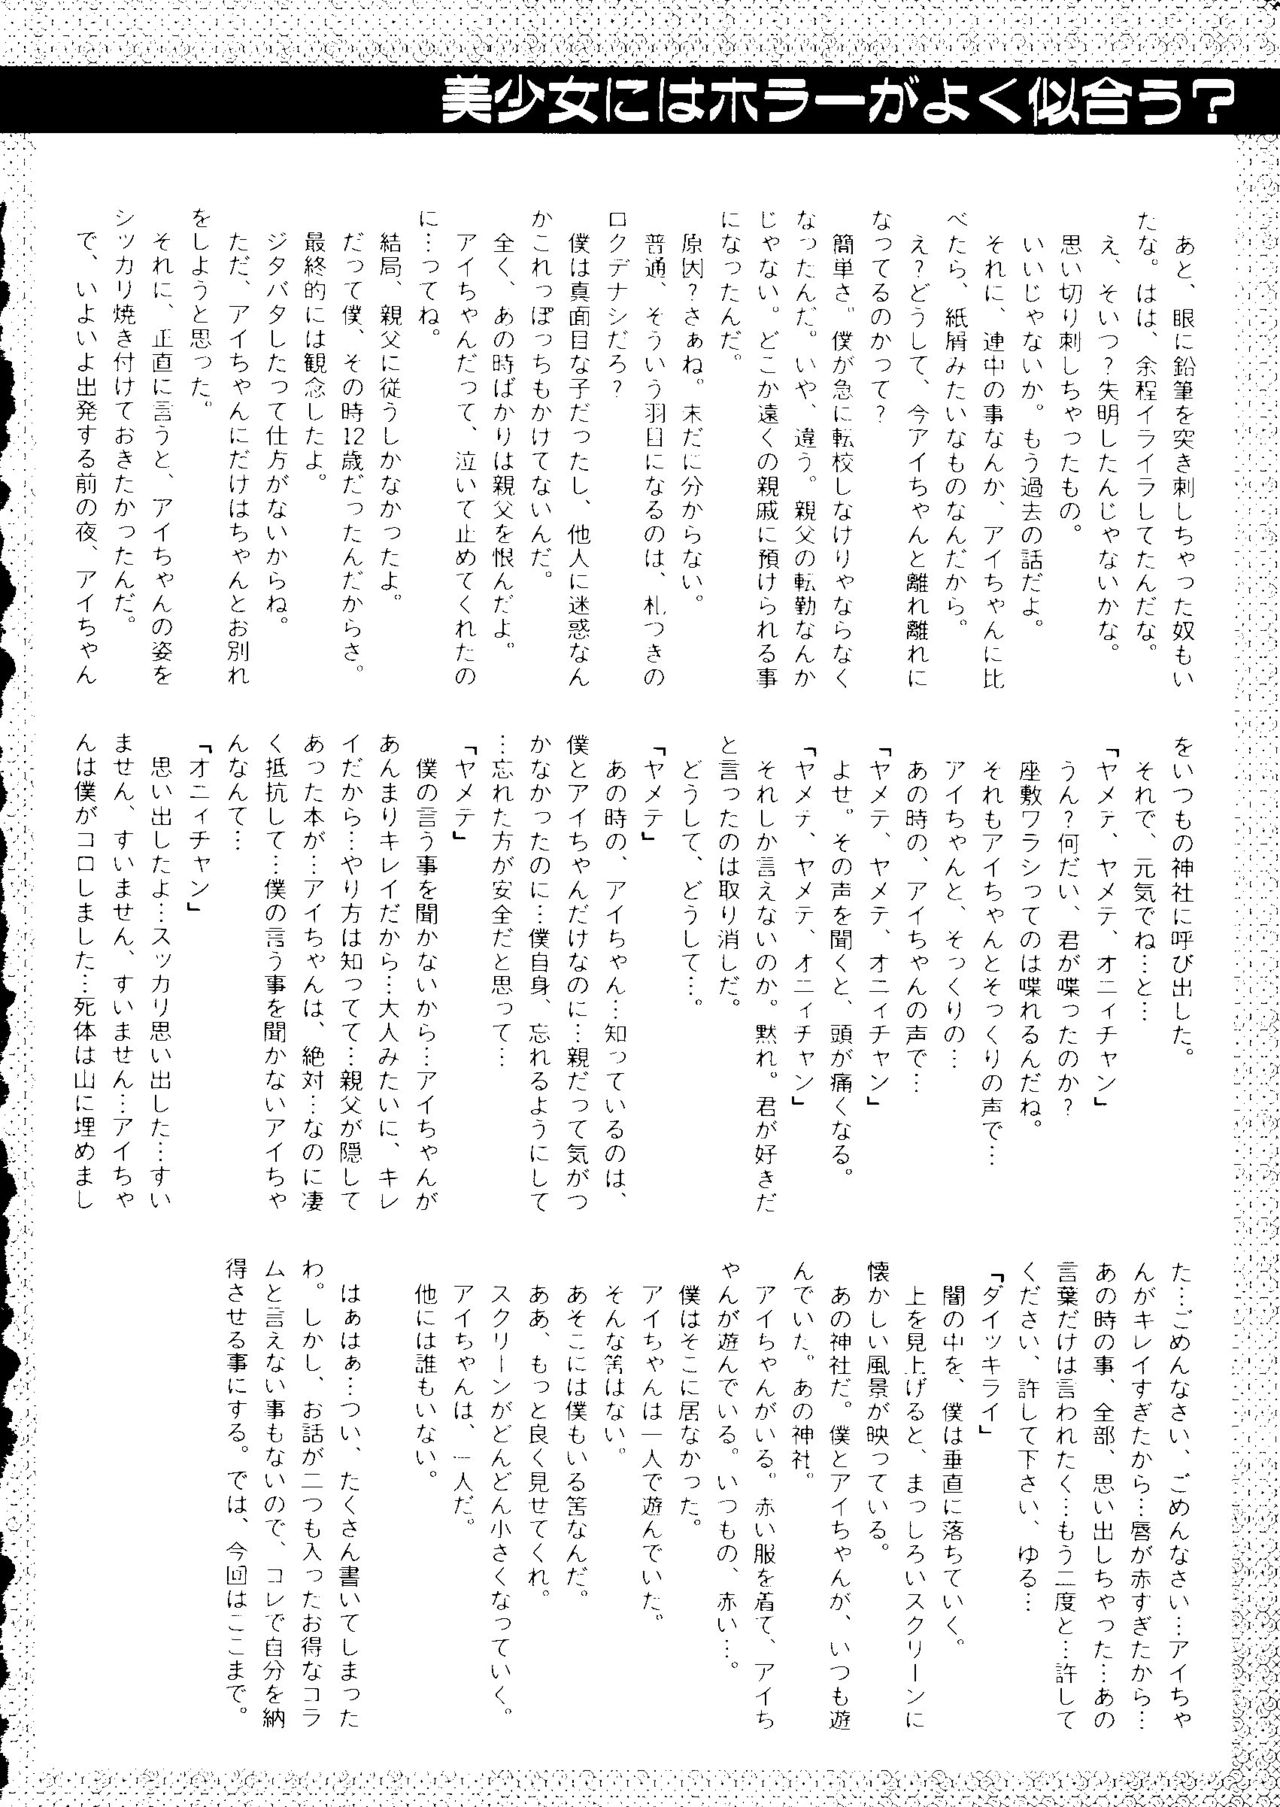 美少女にはホラーがよく似合う？
あと、眼に鉛筆を突き刺しちゃった奴もい
たな。はは、余程イライラしてたんだな。
え、そいつ？失明したんじゃないかな。
思い切り刺しちゃったもの。
いいじゃないか。もう過去の話だよ。
それに、連中の事なんか、アイちゃんに比
べたら、紙屑みたいなものなんだから。
え？どうして、今アイちゃんと離れ離れに
なってるのかって？
簡単さ。僕が急に転校しなけりゃならなく
なったんだ。いや、違う。親父の転勤なんか
じゃない。どこか遠くの親戚に預けられる事
になったんだ。
原因？さぁね。未だに分からない。
普通、そういう羽目になるのは、札つきの
ロクデナシだろ？
僕は真面目な子だったし、他人に迷惑なん
かこれっぽっちもかけてないんだ。
全く、あの時ばかりは親父を恨んだよ。
アイちゃんだって、泣いて止めてくれたの
に…ってね。
結局、親父に従うしかなかったよ。
だって僕、その時12歳だったんだからさ。
最終的には観念したよ。
ジタバタしたって仕方がないからね。
ただ、アイちゃんにだけはちゃんとお別れ
をしようと思った。
それに、正直に言うと、アイちゃんの姿を
シッカリ焼き付けておきたかったんだ。
で、いよいよ出発する前の夜、アイちゃん
をいつもの神社に呼び出した。
それで、元気でね…と…
「ヤメテ、ヤメテ、オニィチャン」
うん？何だい、君が喋ったのか？
座敷ワラシってのは喋れるんだね。
それもアイちゃんとそっくりの声で…
アイちゃんと、そっくりの…
あの時の、アイちゃんの声で…
「ヤメテ、ヤメテ、オニィチャン」
よせ。その声を聞くと、頭が痛くなる。
「ヤメテ、ヤメテ、オニィチャン」
それしか言えないのか。黙れ。君が好きだ
と言ったのは取り消しだ。
どうして、どうして…。
「ヤメテ」
あの時の、アイちゃん…知っているのは、
僕とアイちゃんだけなのに…親だって気がつ
かなかったのに…僕自身、忘れるようにして
…忘れた方が安全だと思って…
「ヤメテ」
僕の言う事を聞かないから…アイちゃんが
あんまりキレイだから…大人みたいに、キレ
イだから…やり方は知ってて…親父が隠して
あった本が…アイちゃんは、絶対…なのに凄
く抵抗して…僕の言う事を聞かないアイちゃ
んなんて…
「オニィチャン」
思い出したよ…スッカリ思い出した…すい
ません、すいません、すいません…アイちゃ
んは僕がコロしました…死体は山に埋めまし
た…ごめんなさい、ごめんなさい…アイちゃ
んがキレイすぎたから…唇が赤すぎたから…
あの時の事、全部、思い出しちゃった…あの
言葉だけは言われたく…もう二度と…許して
ください、許して下さい、ゆる…
「ダイッキライ」
闇の中を、僕は垂直に落ちていく。
上を見上げると、まっしろいスクリーンに
懐かしい風景が映っている。
あの神社だ。僕とアイちゃんが、いつも遊
んでいた。あの神社。
アイちゃんがいる。赤い服を着て、アイち
ゃんが遊んでいる。いつもの、赤い…。
僕はそこに居なかった。
アイちゃんは一人で遊んでいた。
そんな筈はない。
あそこには僕もいる筈なんだ。
ああ、もっと良く見せてくれ。
スクリーンがどんどん小さくなっていく。
アイちゃんは、一人だ。
他には誰もいない。
はぁはぁ…つい、たくさん書いてしまった
わ。しかし、お話が二つも入ったお得なコラ
ムと言えない事もないので、コレで自分を納
得させる事にする。では、今回はここまで。